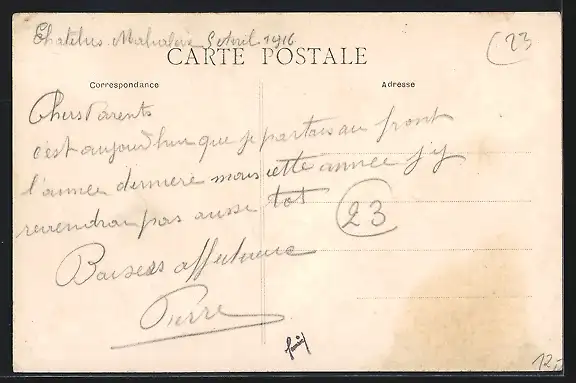 Chatelus-Malvaleix 5 Avril 1916
(23
CARTE POSTALE
Correspondance
Adresse
Chers Parents
c'est aujourd'hui que je partais au front
l'année dernière mais cette année j'y
reviendrai pas aussi tot
23
Baisers affectueux
Pierre
12